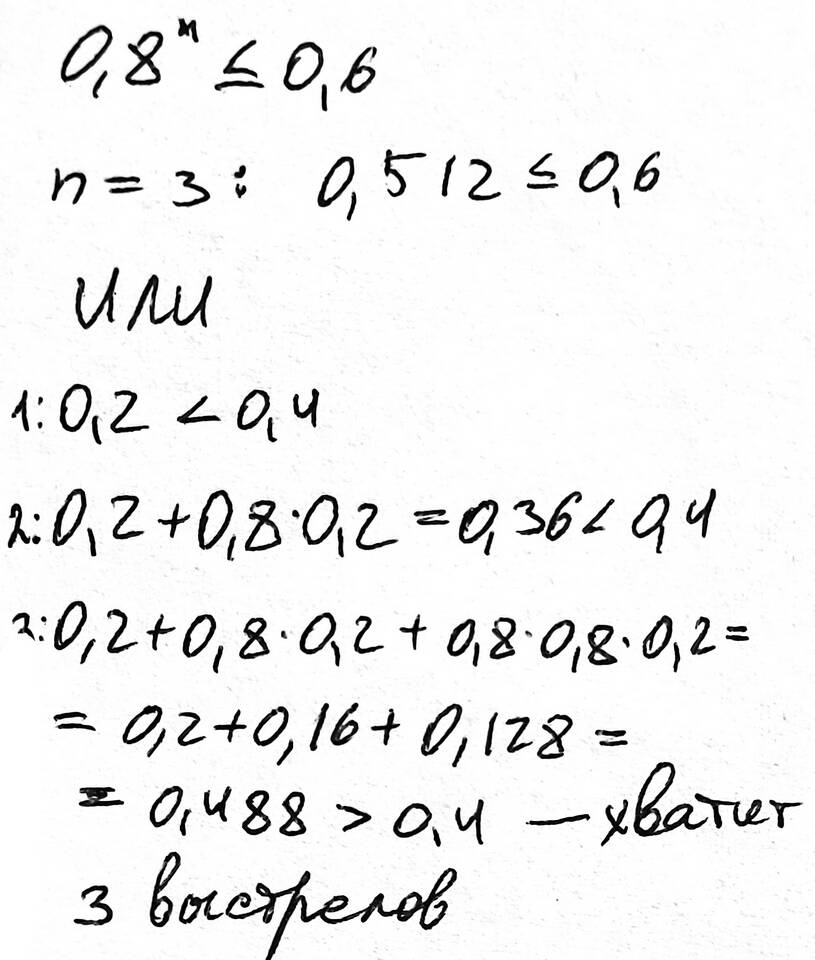 0,8ⁿ ≤ 0,6
n = 3 : 0,512 ≤ 0,6
или
1: 0,2 < 0,4
2: 0,2 + 0,8 · 0,2 = 0,36 < 0,4
3: 0,2 + 0,8 · 0,2 + 0,8 · 0,8 · 0,2 =
= 0,2 + 0,16 + 0,128 =
= 0,488 > 0,4 — хватит
3 выстрелов